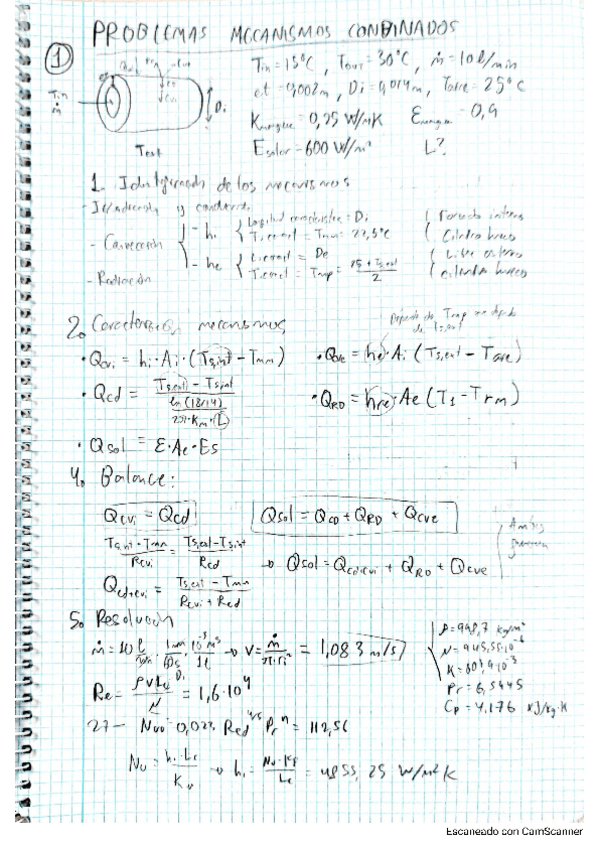 PROBLEMAS MECANISMOS COMBINADOS
1
Tin = 15°C, Tout = 30°C, ṁ = 10 l/min
et = 0,002m, Di = 0,014m, Taire = 25°C
= 0,25 W/mK = 0,9
Esolar = 600 W/m² L?
Tin
ṁ
Di
Text
1. Identificación de los mecanismos
- Convección
- hi
Longitud característica = Di
= 22,5°C
Forzado interno
Cilindro hueco
- he
= De
= 25 + Ts,ext / 2
Libre externo
Cilindro hueco
- Radiación
2. mecanismos
Depende de Temp
• Qcvi = hi · Ai · (Ts,int - Tmm)
• Qcve = he · Ai (Ts,ext - Taire)
• Qcd = Ts,ext - Ts,int / ln(18/14) / 2π · Km · L
• QRD = hre · Ae (Ts - Trm)
• Qsol = ε · Ae · Es
4. Balance:
Qcvi = Qcd
Qsol = QCD + QRD + QCVE
Ts,int - Tmm / Rcvi = Ts,ext - Ts,int / Rcd
→ Qsol = Qcd+cvi + QRD + Qcve
Qcd+cvi = Ts,ext - Tmm / Rcvi + Rcd
5. Resolución
ṁ = 10 l/min · 1min/60s · 10⁻³m³/1l → V = ṁ / π · ri² = 1,083 m/s
ρ = 998,7 kg/m³
K = 604,9·10⁻³
Pr = 6,5445
Cp = 4,176 KJ/kg·K
Re = ρVLc / μ = 1,6·10⁴
27 - Nuo = 0,023 Red⁴/⁵ Prⁿ = 112,56
Nu = hi · Lc / K → hi = Nu · Kf / Lc = 4855,25 W/m²K
Escaneado con CamScanner